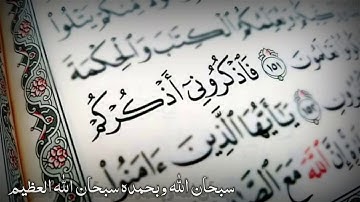 مِنكُمْ يَتْلُوا
ٱلْكِتَٰبَ وَٱلْحِكْمَةَ
تَعْلَمُونَ ١٥١ فَٱذْكُرُونِىٓ أَذْكُرْكُمْ
١٥٢ يَٰٓأَيُّهَا ٱلَّذِينَ ءَامَنُوا۟
إِنَّ ٱللَّهَ مَعَ
سبحان الله وبحمده سبحان الله العظيم